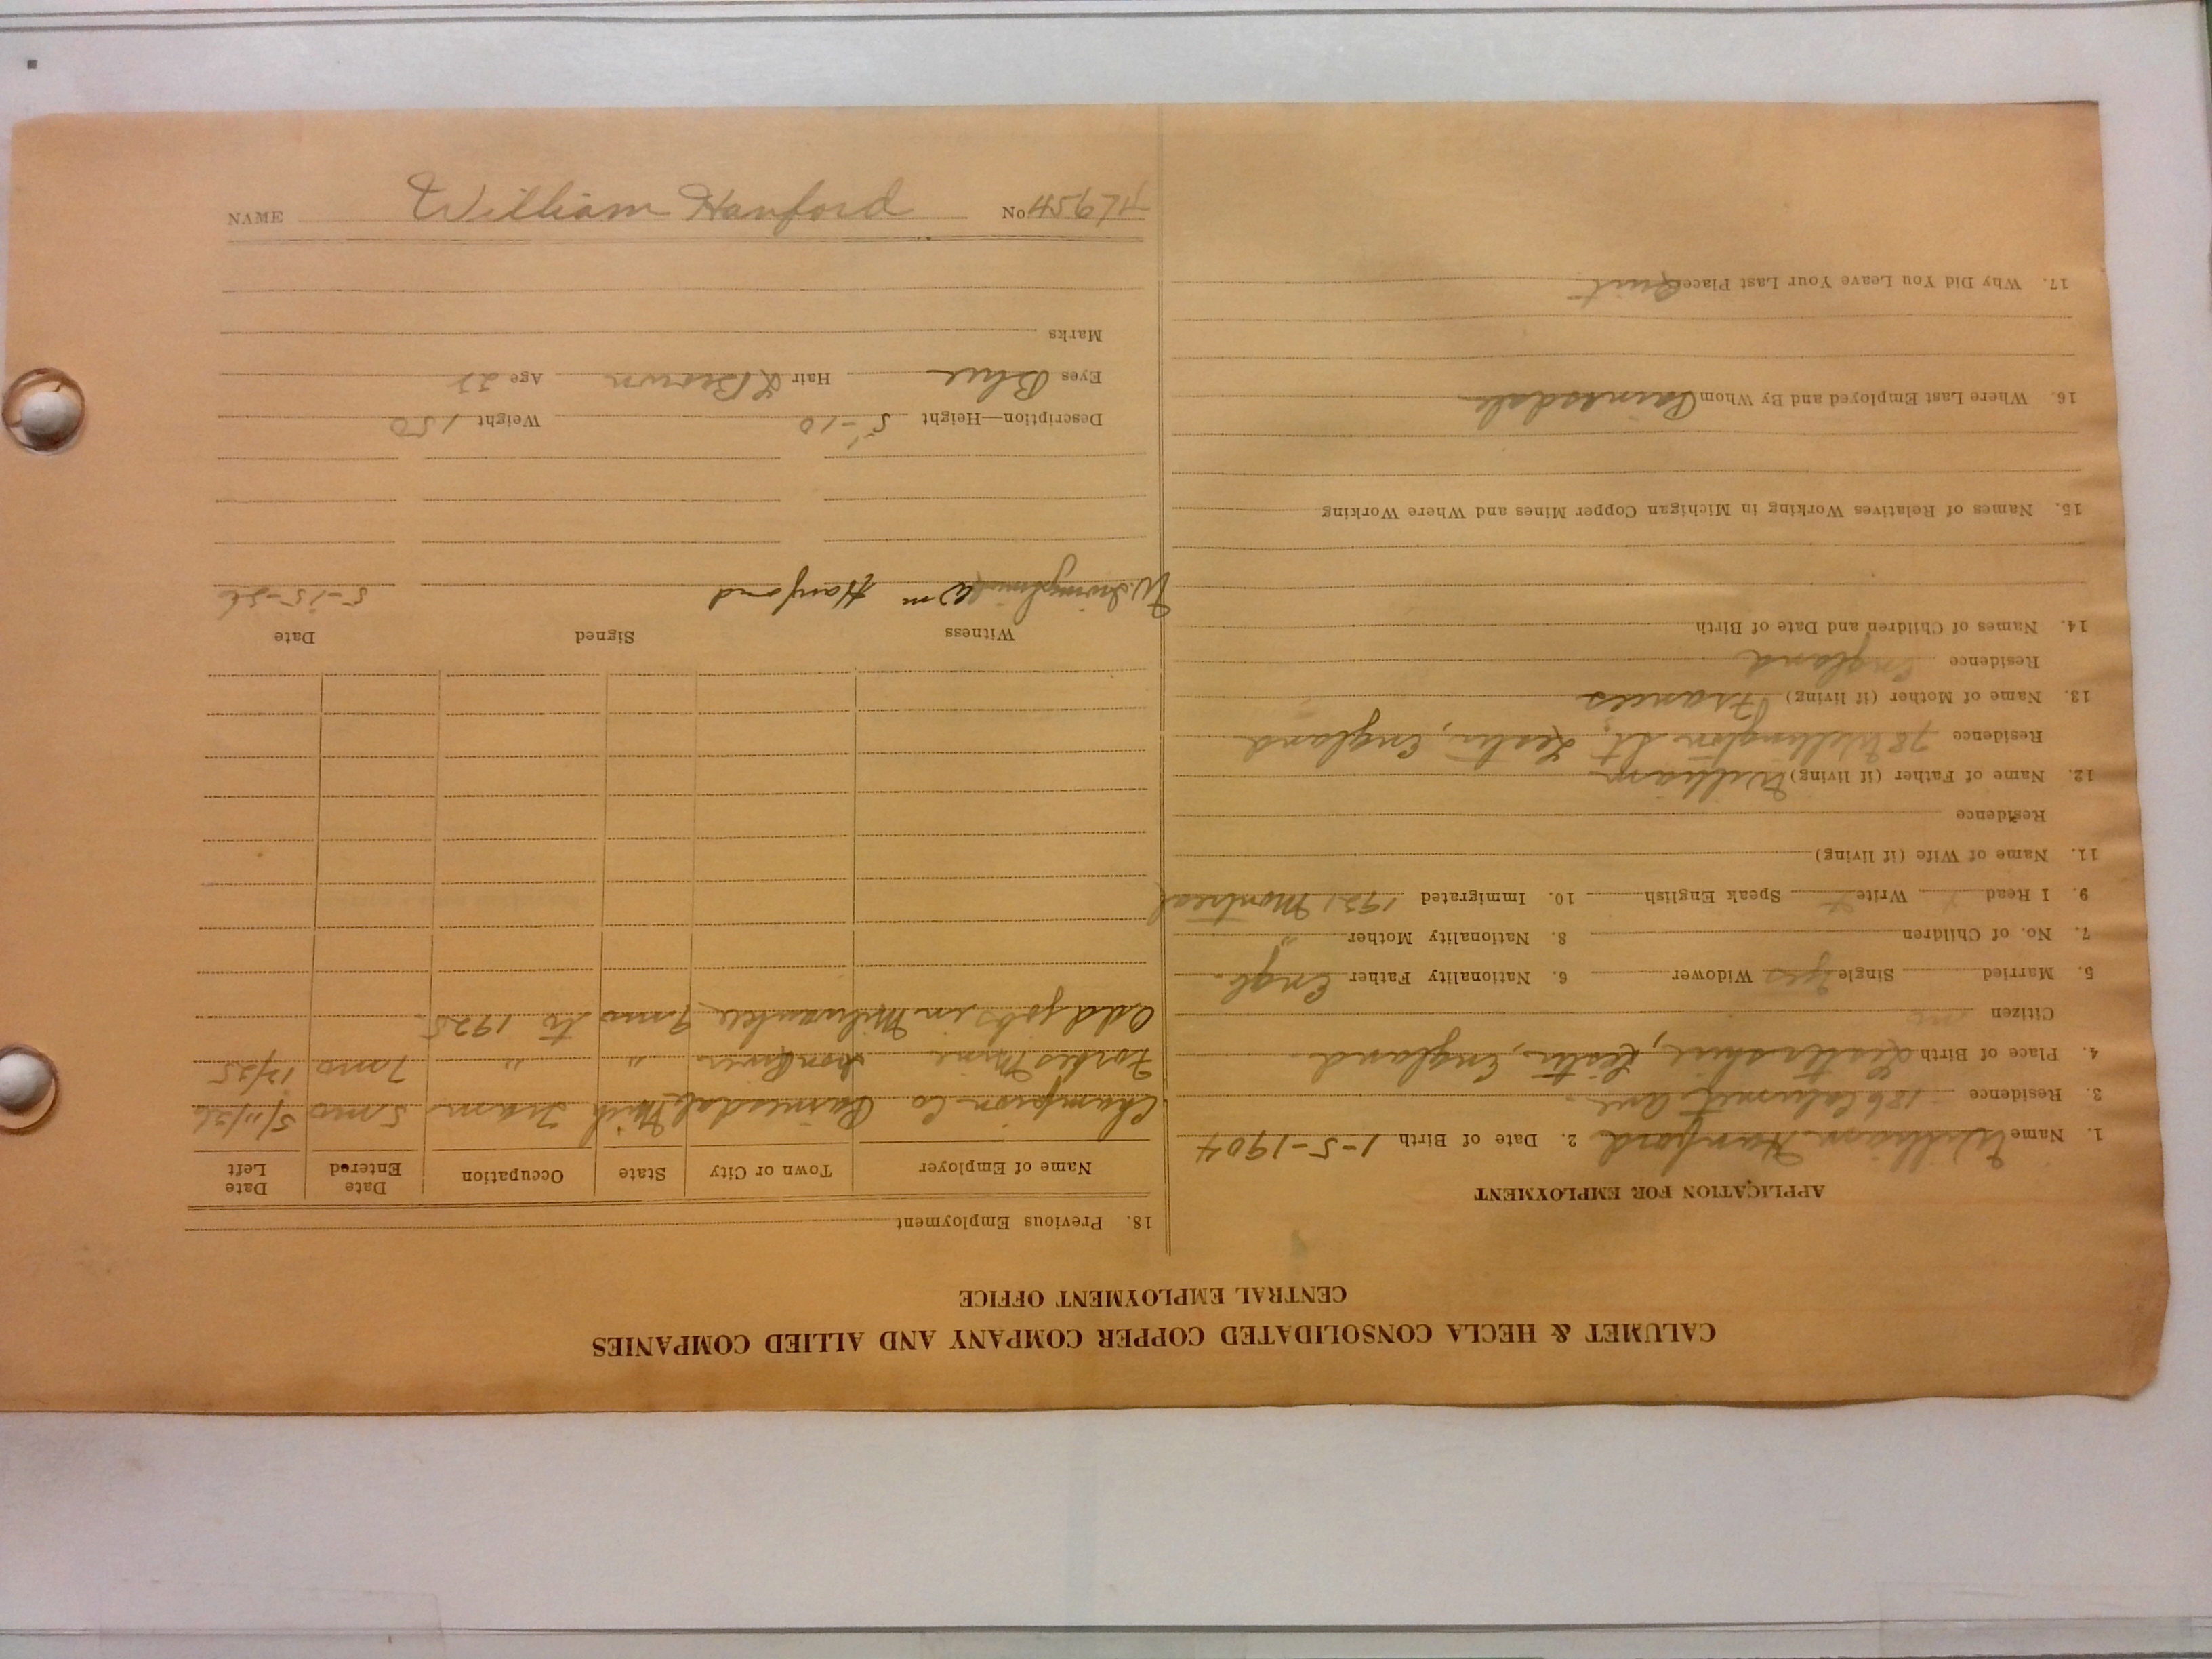 CALUMET & HECLA CONSOLIDATED COPPER COMPANY AND ALLIED COMPANIES
CENTRAL EMPLOYMENT OFFICE
APPLICATION FOR EMPLOYMENT
1. Name William Hanford 2. Date of Birth 1-5-1904
3. Residence 186 Calumet Ave.
4. Place of Birth Lestershire, Lester, England
Citizen no
5. Married Single yes Widower 6. Nationality Father Engl.
7. No. of Children 8. Nationality Mother "
9. I Read Write Speak English 10. Immigrated 1921 Montreal
11. Name of Wife (if living)
Residence
12. Name of Father (if living) William
Residence 78 Wellington St. Lester, England
13. Name of Mother (if living) Frances
Residence England
14. Names of Children and Date of Birth
15. Names of Relatives Working in Michigan Copper Mines and Where Working
16. Where Last Employed and By Whom Painesdale
17. Why Did You Leave Your Last Place Quit
18. Previous Employment
Name of Employer Town or City State Occupation Date Entered Date Left
Champion Co Painesdale Mich Tram 5 mo 5/11/26
Forbes Mine Iron River " " 7 mo 12/25
Odd jobs in Milwaukee 9 mo to 1925.
Witness Signed Date
Wm Hanford 5-15-26
Description—Height 5-10 Weight 150
Eyes Blue Hair L Brown Age 22
Marks
NAME William Hanford No 45674